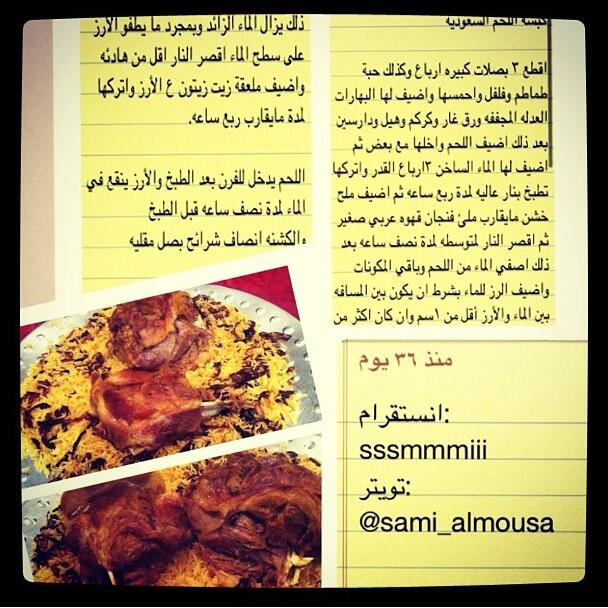 كبسة اللحم السعودية
اقطع ٣ بصلات كبيره ارباع وكذلك حبة
طماطم وفلفل واحمسها واضيف لها البهارات
العدله المجففه ورق غار وكركم وهيل ودارسين
بعد ذلك اضيف اللحم واخلها مع بعض ثم
اضيف لها الماء الساخن ٣ارباع القدر واتركها
تطبخ بنار عاليه لمدة ربع ساعه ثم اضيف ملح
خشن مايقارب ملئ فنجان قهوه عربي صغير
ثم اقصر النار لمتوسطه لمدة نصف ساعه بعد
ذلك اصفي الماء من اللحم وباقي المكونات
واضيف الرز للماء بشرط ان يكون بين المسافه
بين الماء والأرز أقل من ١سم وان كان اكثر من
ذلك يزال الماء الزائد وبمجرد ما يطفو الأرز
على سطح الماء اقصر النار اقل من هادئه
واضيف ملعقة زيت زيتون ع الأرز واتركها
لمدة مايقارب ربع ساعه.
اللحم يدخل للفرن بعد الطبخ والأرز ينقع في
الماء لمدة نصف ساعه قبل الطبخ
والكشنه انصاف شرائح بصل مقليه
منذ ٣٦ يوم
انستقرام:
sssmmmiii
تويتر:
@sami_almousa